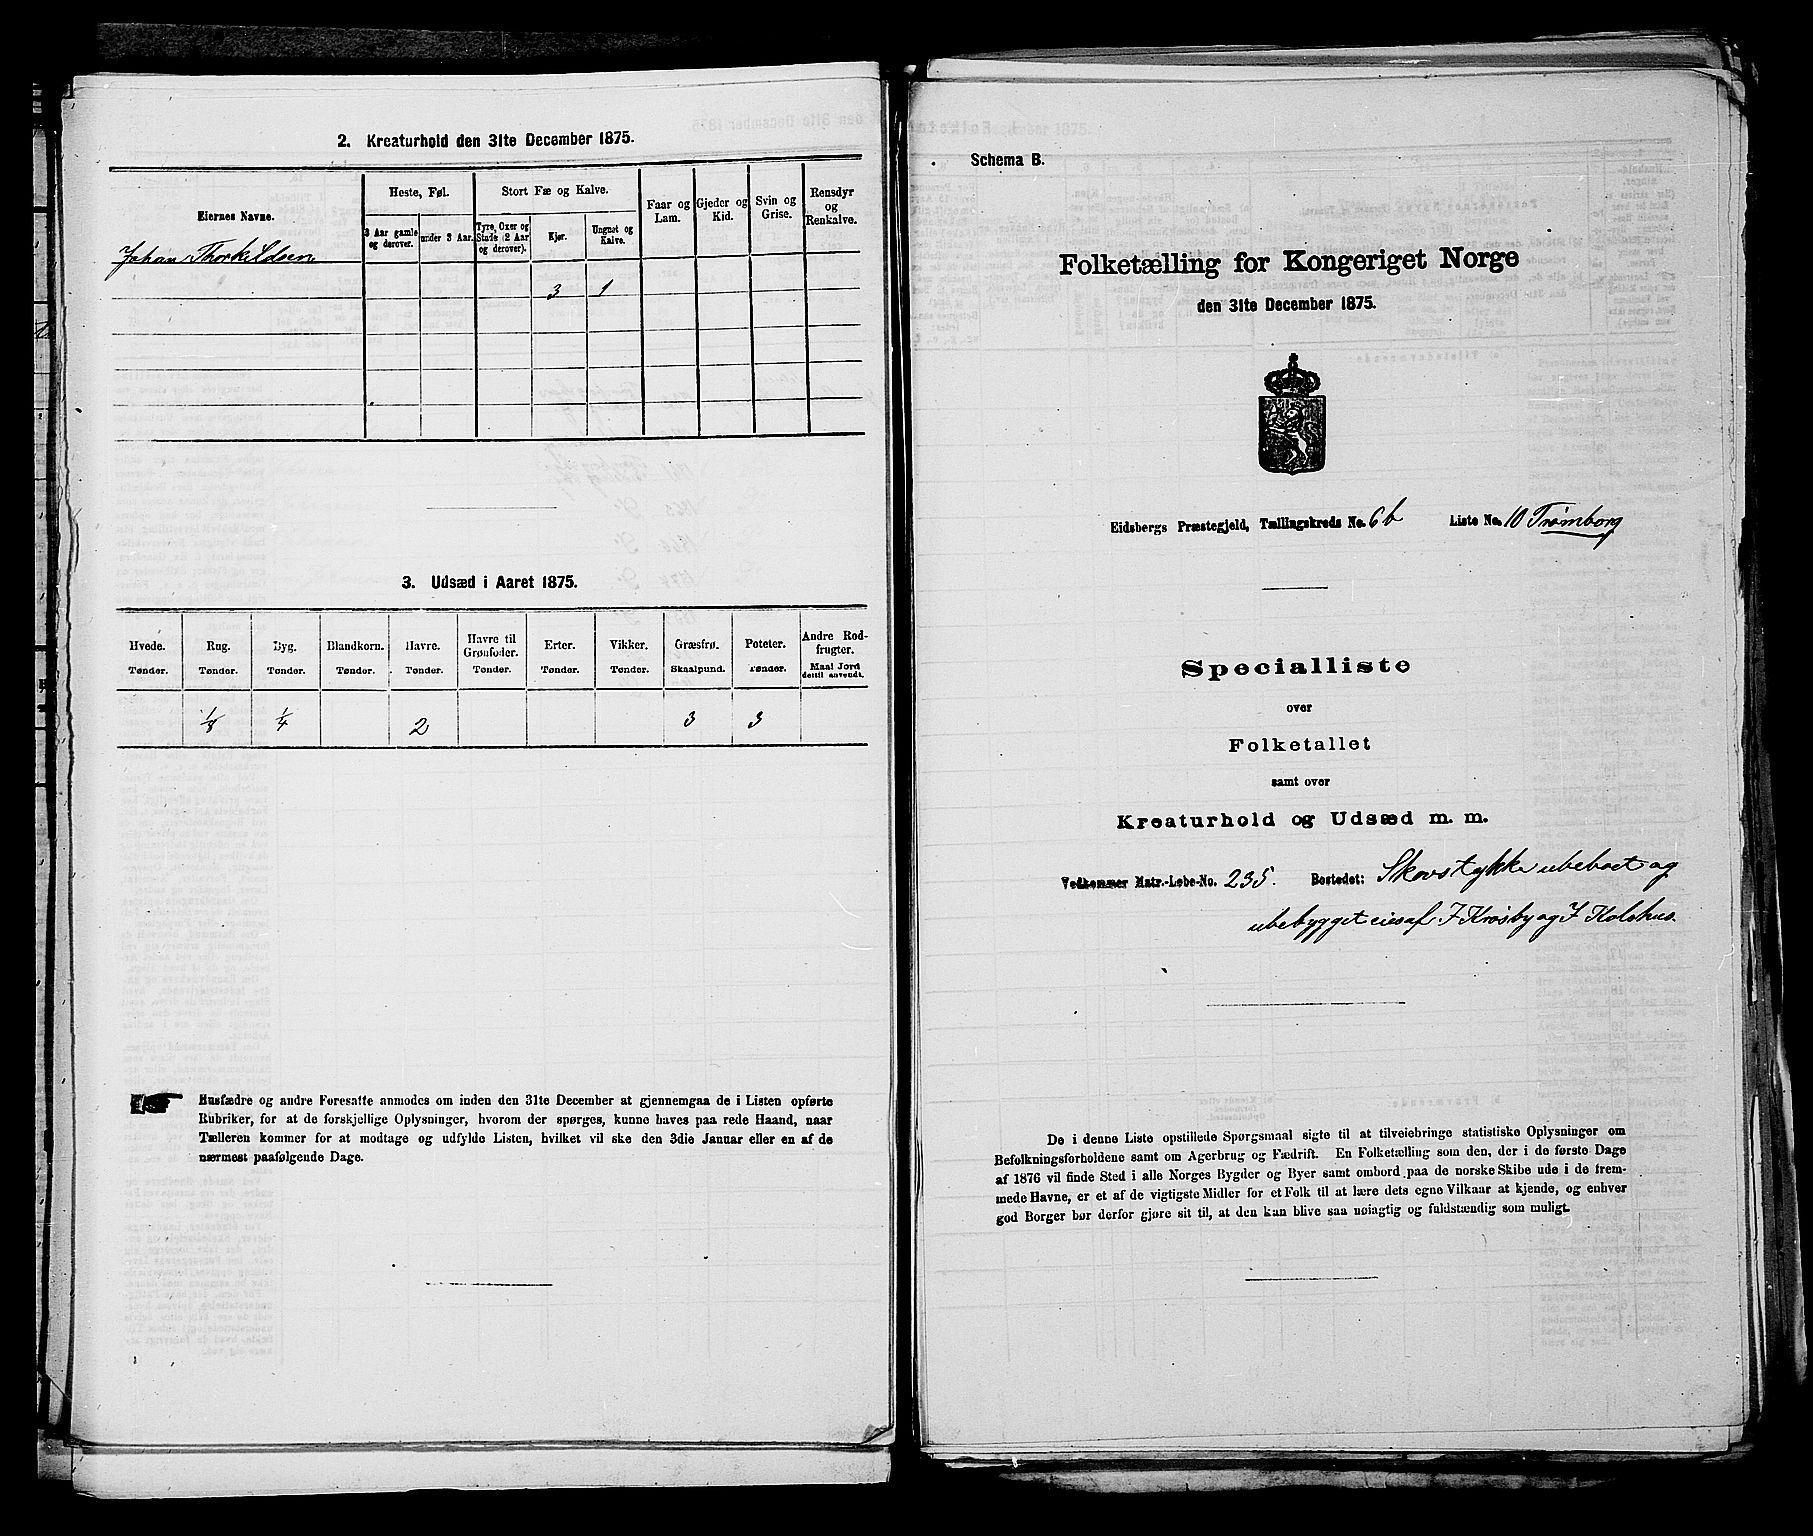 2. Kreaturhold den 31te December 1875.
Eiernes Navne.
Heste, Føl.
Stort Fæ og Kalve.
Faar og Lam.
Gjeder og Kid.
Svin og Grise.
Rensdyr og Renkalve.
3 Aar gamle og derover.
under 3 Aar.
Tyre, Oxer og Stude (2 Aar og derover).
Kjør.
Ungnøt og Kalve.
Johan Thorkildsen
3 1
3. Udsæd i Aaret 1875.
Hvede. Rug. Byg. Blandkorn. Havre. Havre til Grønfoder. Erter. Vikker. Græsfrø. Poteter. Andre Rodfrugter.
Tønder. Tønder. Tønder. Tønder. Tønder. Tønder. Tønder. Tønder. Skaalpund. Tønder. Maal Jord dertil anvendt.
1/8 1/4 2 3 3
Husfædre og andre Foresatte anmodes om inden den 31te December at gjennemgaa de i Listen opførte
Rubriker, for at de forskjellige Oplysninger, hvorom der spørges, kunne haves paa rede Haand, naar
Tælleren kommer for at modtage og udfylde Listen, hvilket vil ske den 3die Januar eller en af de
nærmest paafølgende Dage.
Schema B.
Folketælling for Kongeriget Norge
den 31te December 1875.
Eidsbergs Præstegjeld, Tællingskreds No. 6b Liste No. 10 Trømborg
Specialliste
over
Folketallet
samt over
Kreaturhold og Udsæd m. m.
Vedkommer Matr.-Løbe-No. 235. Bostedet: Skovstykke ubeboet og
ubebygget eies af J Krosby og J Kolshus.
De i denne Liste opstillede Spørgsmaal sigte til at tilveiebringe statistiske Oplysninger om
Befolkningsforholdene samt om Agerbrug og Fædrift. En Folketælling som den, der i de første Dage
af 1876 vil finde Sted i alle Norges Bygder og Byer samt ombord paa de norske Skibe ude i de frem-
mede Havne, er et af de vigtigste Midler for et Folk til at lære dets egne Vilkaar at kjende, og enhver
god Borger bør derfor gjøre sit til, at den kan blive saa nøiagtig og fuldstændig som muligt.